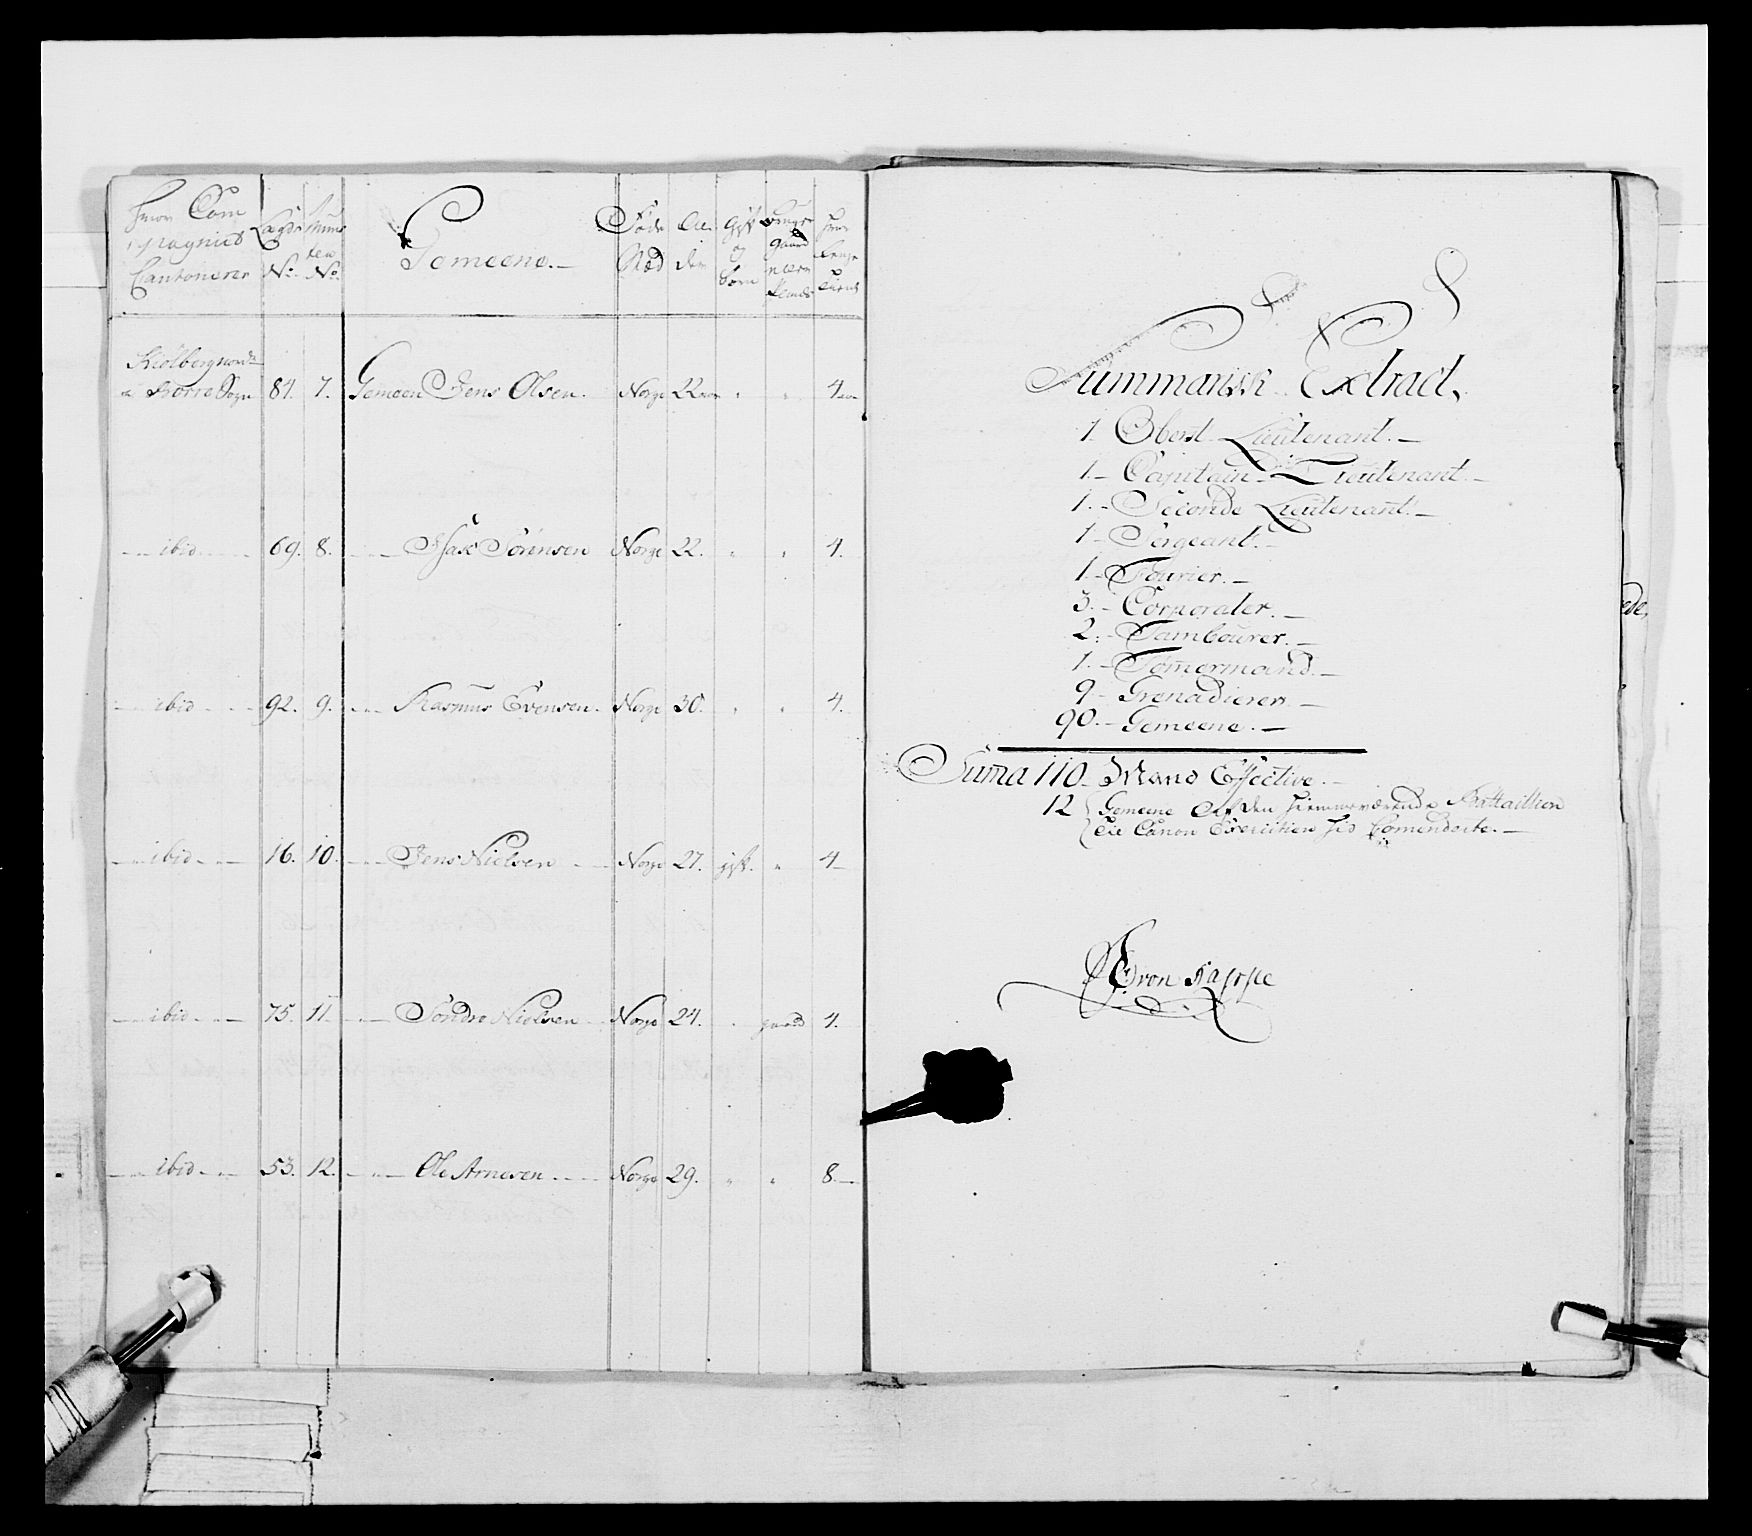 hvor Com
pagniet
Cantonerer
Lægds
No.
Num
ner
No.
Gemeene.
Føde
Stæd
Al
der
Gift
og
Børn
hvor
Lenge
tient
Kiölberg
Borre Sogn 84. 7. Gemeen Jens Olsen. Norge 22 " " 4
ibid 69. 8. Isac Sörensen Norge 22. " " 4.
ibid 92. 9. Rasmus Evensen. Norge 30. " " 4.
ibid 16. 10. Jens Nielsen Norge 27. gift. " 4
ibid 75. 11 Söndre Nielsen Norge 24. " gaard 4.
ibid 53. 12. Ole Arnesen Norge 29. " " 8.
Summarisk Extract,
1. Oberst Lieutenant.
1. Capitain Lieutenant.
1. Seconde Lieutenant.
1 Sergeant.
1. Fourier.
3. Corporaler.
2. Tambourer.
1. Tömermand.
9 Grenadierer.
90. Gemeene.
Suma 110 Mand Effective.
12 Gemeene Af den hiemmeværende Battaillion
til Canon Exercitien hid Comenderte.
von Kappe
ede,